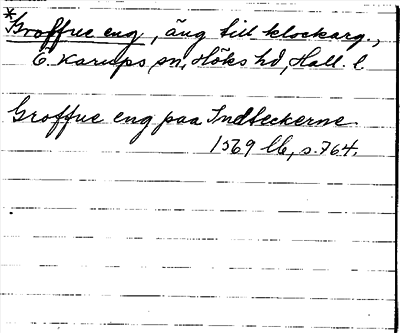 *Groffue eng, äng till klockarg.,
Ö. Karups sn, Höks hd, Hall. l
Groffue eng paa Indbeckerne
1569 lb, s. 764.